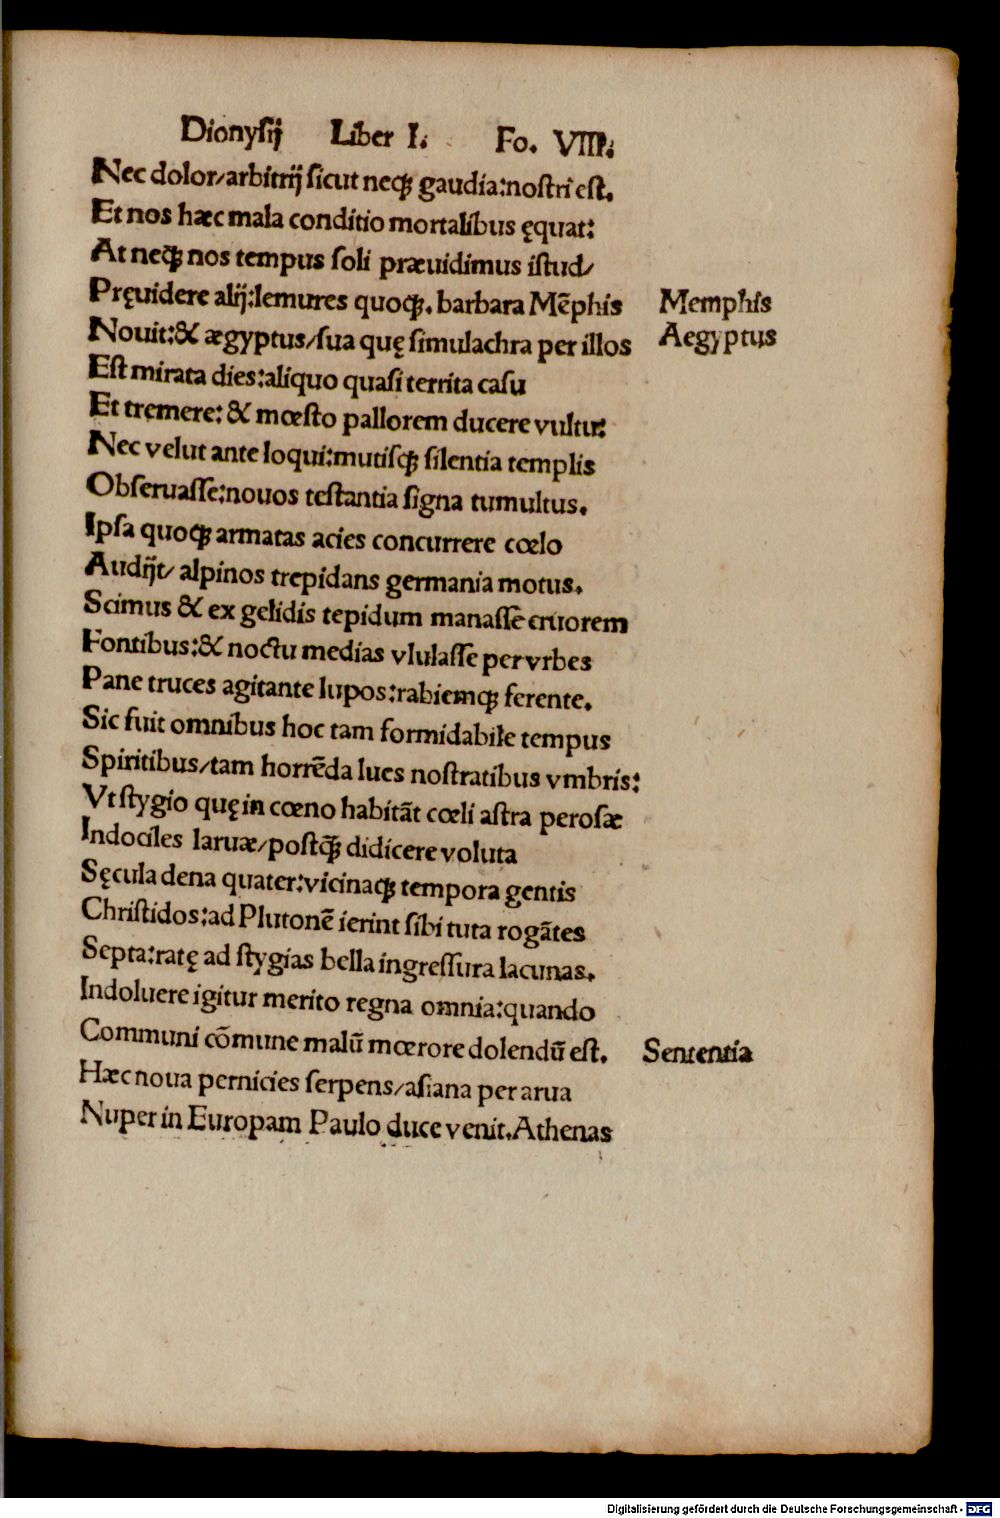 Dionysij Liber I. Fo. VIII.
Nec dolor/arbitrij sicut neqꝫ gaudia:nostri est.
Et nos hæc mala conditio mortalibus ęquat:
At neqꝫ nos tempus soli præuidimus istud/
Pręuidere alij:lemures quoqꝫ. barbara Mēphis
Memphis
Nouit:& ægyptus/sua quę simulachra per illos
Aegyptus
Est mirata dies:aliquo quasi territa casu
Et tremere: & mœsto pallorem ducere vultu:
Nec velut ante loqui:mutisqꝫ silentia templis
Obseruasse:nouos testantia signa tumultus.
Ipsa quoqꝫ armatas acies concurrere cœlo
Audijt/ alpinos trepidans germania motus.
Scimus & ex gelidis tepidum manasse cruorem
Fontibus:& noctu medias vlulasse per vrbes
Pane truces agitante lupos:rabiemqꝫ ferente.
Sic fuit omnibus hoc tam formidabile tempus
Spiritibus/tam horrēda lues nostratibus vmbris:
Vt stygio quę in cœno habitāt cœli astra perosæ
Indociles laruæ/postqꝫ̄ didicere voluta
Sęcula dena quater:vicinaqꝫ tempora gentis
Christidos:ad Plutonē ierint sibi tuta rogātes
Septa:ratę ad stygias bella ingressura lacunas.
Indoluere igitur merito regna omnia:quando
Communi cōmune malū mœrore dolendū est.
Sententia
Hæc noua pernicies serpens/asiana per arua
Nuper in Europam Paulo duce venit.Athenas
Digitalisierung gefördert durch die Deutsche Forschungsgemeinschaft - DFG